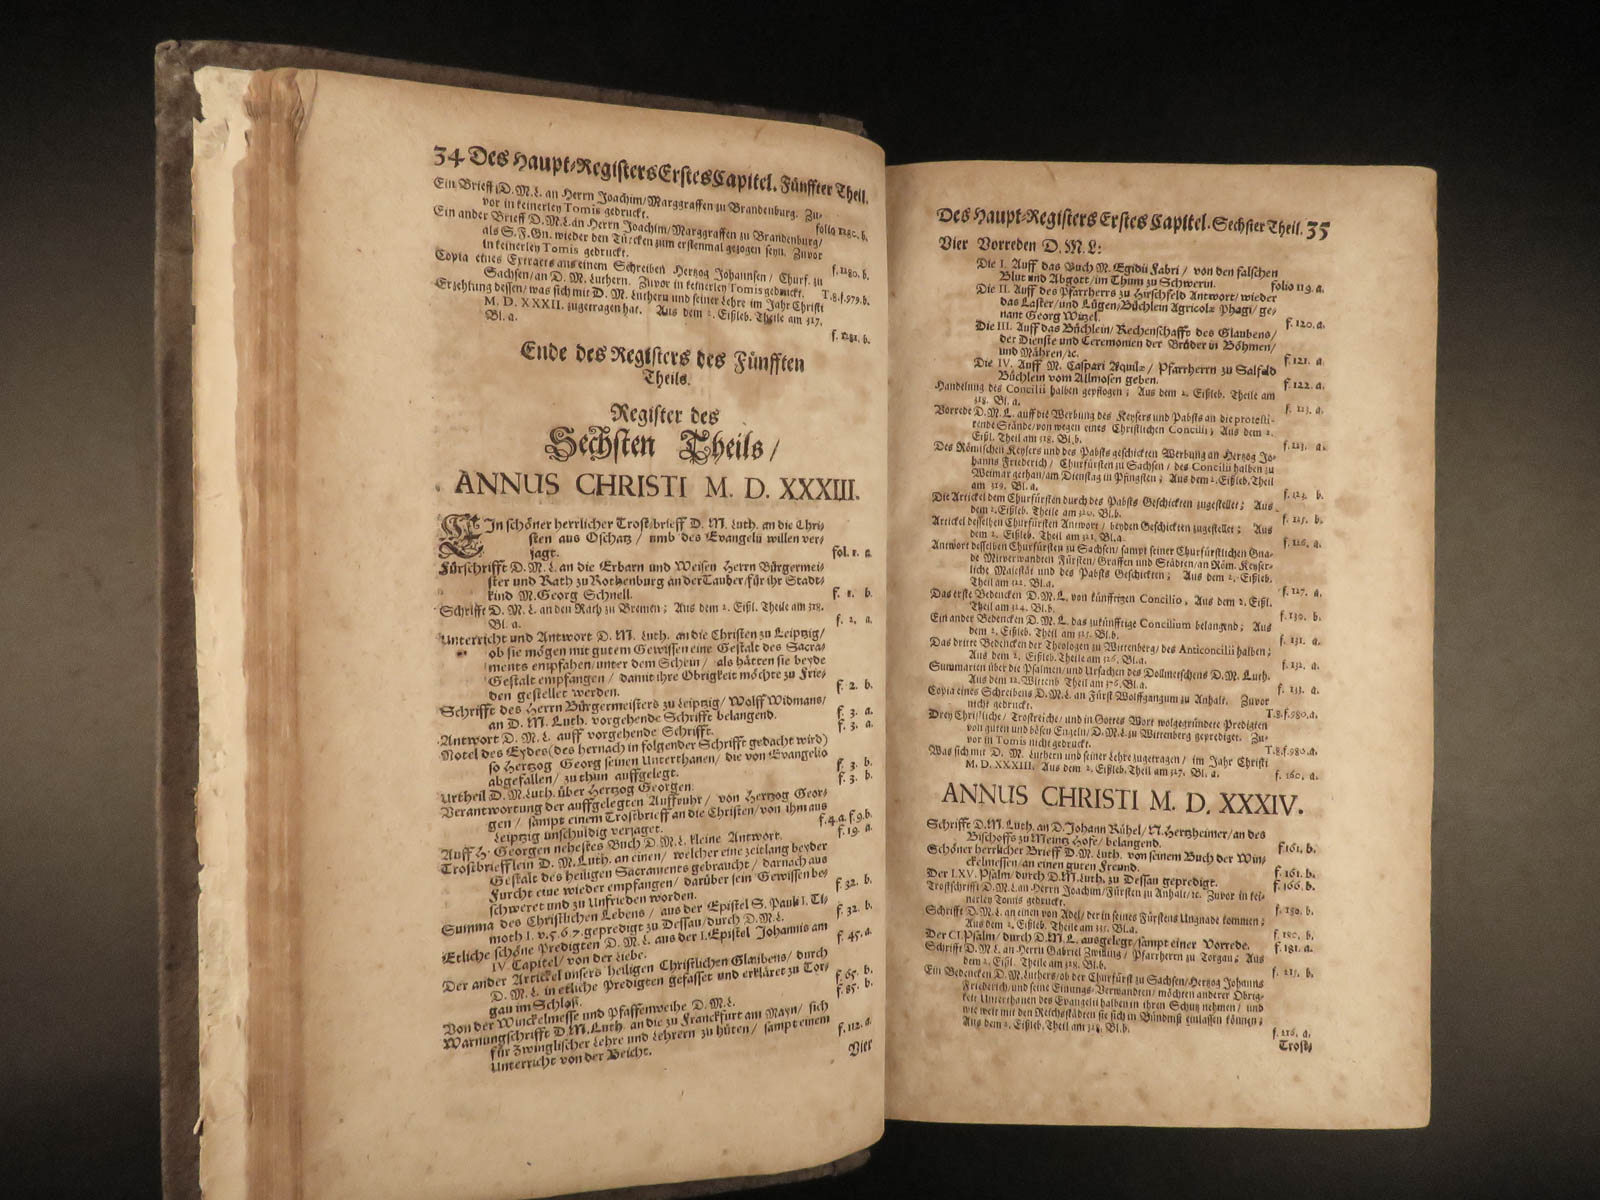 34 Des Haupt-Registers Erstes Capitel. Fünffter Theil.
Ein Brieff D. M. L. an Herrn Joachim/ Marggraffen zu Brandenburg. Zu-
vor in keinerley Tomis gedruckt. folio 1280. b.
Ein ander Brieff D. M. L. an Herrn Joachim/ Marggraffen zu Brandenburg/
als S. F. Gn. wieder den Türcken zum erstenmal gezogen seyn. Zuvor
in keinerley Tomis gedruckt. f. 1280. b.
Copia eines Extracts aus einem Schreiben Hertzog Johannsen/ Churf. zu
Sachsen/ an D. M. Luthern. Zuvor in keinerley Tomis gedruckt. T. 8. f. 979. b.
Erzehlung dessen/ was sich mit D. M. Luthern und seiner Lehre im Jahr Christi
M. D. XXXII. zugetragen hat. Aus dem 2. Eißleb. Theile am 317.
Bl. a. f. 1281. b.
Ende des Registers des Fünfften
Theils.
Register des
Sechsten Theils/
ANNUS CHRISTI M. D. XXXIII.
EIn schöner herrlicher Trostbrieff D. M. Luth. an die Chri-
sten aus Oschatz/ umb des Evangelii willen ver-
jagt. fol. 1. a.
Fürschrifft D. M. L. an die Erbarn und Weisen Herrn Bürgermei-
ster und Rath zu Rothenburg an der Tauber/ für ihr Stadt-
kind M. Georg Schnell. f. 1. b.
Schrifft D. M. L. an den Rath zu Bremen; Aus dem 2. Eißl. Theile am 318.
Bl. a. f. 2. a.
Unterricht und Antwort D. M. Luth. an die Christen zu Leipzig/
ob sie mögen mit gutem Gewissen eine Gestalt des Sacra-
ments empfahen/ unter dem Schein/ als hätten sie beyde
Gestalt empfangen/ damit ihre Obrigkeit möchte zu Frie-
den gestellet werden. f. 2. b.
Schrifft des Herrn Bürgermeisters zu Leipzig/ Wolff Widmans/
an D. M. Luth. vorgehende Schrifft belangend. f. 3. a.
Antwort D. M. L. auff vorgehende Schrifft. f. 3. a.
Notel des Eydes (des hernach in folgender Schrifft gedacht wird)
so Hertzog Georg seinen Unterthanen/ die von Evangelio
abgefallen/ zu thun auffgelegt. f. 3. b.
Urtheil D. M. Luth. über Hertzog Georgen. f. 3. b.
Verantwortung der auffgelegten Auffruhr/ von Hertzog Geor-
gen/ sampt einem Trostbrieff an die Christen/ von ihm aus
Leipzig unschuldig verjaget. f. 4. a. f. 9. b.
Auff H. Georgen nehestes Buch D. M. L. kleine Antwort. f. 19. a.
Trostbriefflein D. M. Luth. an einen/ welcher eine zeitlang beyder
Gestalt des heiligen Sacraments gebraucht/ darnach aus
Furcht eine wieder empfangen/ darüber sein Gewissen be-
schweret und zu Unfrieden worden. f. 32. b.
Summa des Christlichen Lebens/ aus der Epistel S. Pauli I. Ti-
moth I. v. 5. 6. 7. gepredigt zu Dessau/ durch D. M. L. f. 32. b.
Etliche schöne Predigten D. M. L. aus der I. Epistel Johannis am
IV. Capitel/ von der Liebe. f. 45. a.
Der ander Artickel unsers heiligen Christlichen Glaubens/ durch
D. M. L. in etliche Predigten gefasset und erkläret zu Tor-
gau im Schloß. f. 65. b.
Von der Winckelmesse und Pfaffenweihe D. M. L. f. 85. b.
Warnungschrifft D. M. Luth. an die zu Franckfurt am Mayn/ sich
für Zwinglischer Lehre und Lehrern zu hüten/ sampt einem
Unterricht von der Beicht. f. 112. a.
Vier
Des Haupt-Registers Erstes Capitel. Sechster Theil. 35
Vier Vorreden D. M. L:
Die I. Auff das Buch M. Egidii Fabri/ von den falschen
Blut und Abgott/ im Thum zu Schwerin. folio 119. a.
Die II. Auff des Pfarrherrs zu Hirschfeld Antwort/ wieder
das Laster/ und Lügen/ Büchlein Agricolæ Phagi/ ge-
nant Georg Witzel. f. 120. a.
Die III. Auff das Büchlein/ Rechenschafft des Glaubens/
der Dienste und Ceremonien der Brüder in Böhmen/
und Mähren/ ꝛc. f. 121. a.
Die IV. Auff M. Caspari Aquilæ/ Pfarrherrn zu Salfeld
Büchlein vom Allmosen geben. f. 122. a.
Handelung des Concilii halben gepflogen; Aus dem 2. Eißleb. Theile am
318. Bl. a. f. 123. a.
Vorrede D. M. L. auff die Werbung des Keysers und Pabsts an die protesti-
rende Stände/ von wegen eines Christlichen Concilii; Aus dem 2.
Eißl. Theil am 318. Bl. b. f. 123. a.
Des Römischen Keysers und des Pabsts geschickten Werbung an Hertzog Jo-
hanns Friederich/ Churfürsten zu Sachsen/ des Concilii halben zu
Weimar gethan/ am Dienstag in Pfingsten; Aus dem 2. Eißleb. Theil
am 319. Bl. a. f. 123. b.
Die Artickel dem Churfürsten durch des Pabsts Geschickten zugestellet; Aus
dem 2. Eißleb. Theile am 320. Bl. b. f. 125. b.
Artickel desselben Churfürsten Antwort/ beyden Geschickten zugestellet; Aus
dem 2. Eißleb. Theile am 321. Bl. b. f. 126. a.
Antwort desselben Churfürsten zu Sachsen/ sampt seiner Churfürstlichen Gna-
de Mitverwandten Fürsten/ Graffen und Städten/ an Röm. Keyser-
liche Majestät und des Pabsts Geschickten; Aus dem 2. Eißleb.
Theil am 322. Bl. a. f. 127. a.
Das erste Bedencken D. M. L. von künfftigen Concilio. Aus dem 2. Eißl.
Theil am 324. Bl. b. f. 130. b.
Ein ander Bedencken D. M. L. das zukünfftige Concilium belangend; Aus
dem 2. Eißleb. Theil am 325. Bl. b. f. 131. a.
Das dritte Bedencken der Theologen zu Wittenberg/ des Anticoncilii halben;
Aus dem 2. Eißleb. Theile am 326. Bl. a. f. 132. a.
Summarien über die Psalmen/ und Ursachen des Dollmetschens D. M. Luth.
Aus dem 12. Wittenb. Theil am 376. Bl. a. f. 133. a.
Copia eines Schreibens D. M. L. an Fürst Wolffgangum zu Anhalt. Zuvor
nicht gedruckt. T. 8. f. 980. a.
Drey Christliche/ Trostreiche/ und in Gottes Wort wolgegründete Predigten
von guten und bösen Engeln/ D. M. L. zu Wittenberg geprediget. Zu-
vor in Tomis nicht gedruckt. T. 8. f. 980. a.
Was sich mit D. M. Luthern und seiner Lehre zugetragen/ im Jahr Christi
M. D. XXXIII. Aus dem 2. Eißleb. Theil am 327. Bl. a. f. 160. a.
ANNUS CHRISTI M. D. XXXIV.
Schrifft D. M. Luth. an D. Johann Rühel/ N. Hertzheimer/ an des
Bischoffs zu Meintz Hofe/ belangend. f. 161. b.
Schöner herrlicher Brieff D. M. Luth. von seinem Buch der Win-
ckelmessen/ an einen guten Freund. f. 161. b.
Der LXV. Psalm/ durch D. M. Luth. zu Dessau gepredigt. f. 166. b.
Trostschrifft D. M. L. an Herrn Joachim/ Fürsten zu Anhalt/ ꝛc. Zuvor in kei-
nerley Tomis gedruckt. f. 180. b.
Schrifft D. M. L. an einen von Adel/ der in seines Fürstens Ungnade kommen;
Aus dem 2. Eißleb. Theile am 331. Bl. a. f. 180. b.
Der CI. Psalm/ durch D. M. L. ausgelegt/ sampt einer Vorrede. f. 181. a.
Schrifft D. M. L. an Herrn Gabriel Zwilling/ Pfarrherrn zu Torgau; Aus
dem 2. Eißl. Theile am 328. Bl. b. f. 215. b.
Ein Bedencken D. M. Luthers/ ob der Churfürst zu Sachsen/ Hertzog Johanns
Friederich/ und seine Einungs-Verwandten/ möchten anderer Obrig-
keit Unterthanen des Evangelii halben in ihren Schutz nehmen/ und
wie weit mit den Reichsstädten sie sich in Bündniß einlassen können;
Aus dem 2. Eißleb. Theil am 328. Bl. b. f. 216. a.
Trost-